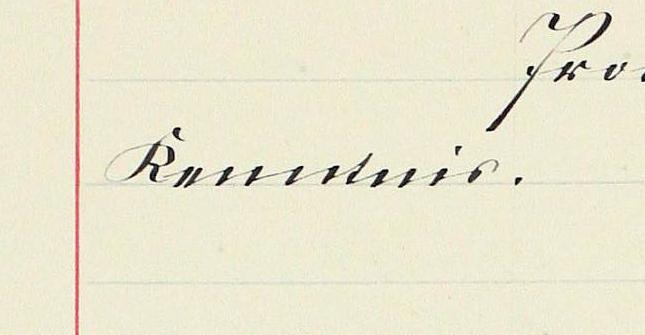 Pro
Kenntnis.